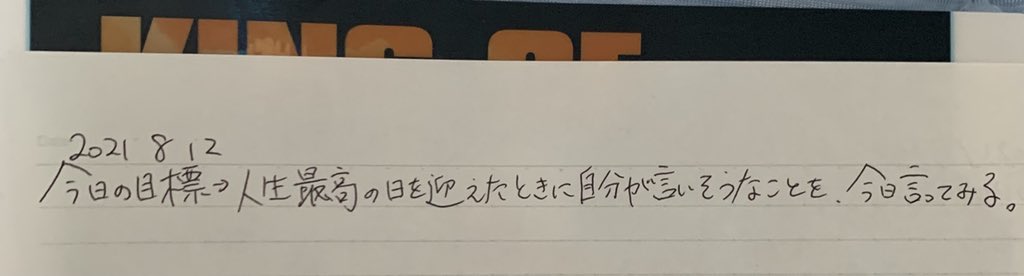 KING OF
2021 8 12
今日の目標→人生最高の日を迎えたときに自分が言いそうなことを、今日言ってみる。